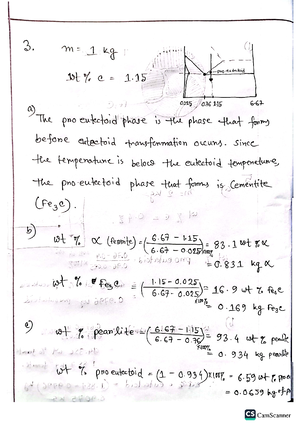 3. m = 1 kg
wt % c = 1.15
pro-eutectoid
0.025 0.76 1.15 6.67
a)
The pro eutectoid phase is the phase that forms
before eutectoid transformation occurs. Since
the temperature is below the eutectoid temperature,
the pro eutectoid phase that forms is Cementite
(Fe3C).
b) wt % α (ferrite) = (6.67 - 1.15 / 6.67 - 0.025) x100% = 83.1 wt % α
= 0.831 kg α
wt % Fe3C = (1.15 - 0.025 / 6.67 - 0.025) x100% = 16.9 wt % Fe3C
= 0.169 kg Fe3C
c) wt % pearlite = (6.67 - 1.15 / 6.67 - 0.76) x100% = 93.4 wt % pearlite
= 0.934 kg pearlite
wt % pro eutectoid = (1 - 0.934) x100% = 6.59 wt %
= 0.0659 kg of
CS CamScanner